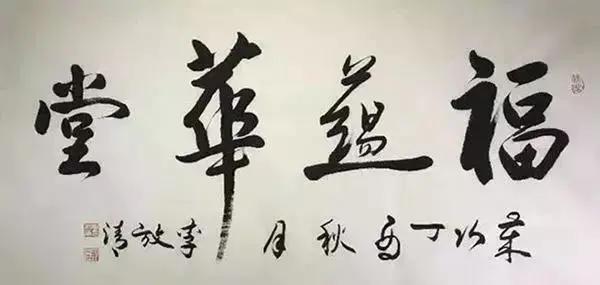 福蘊華堂
歲次丁酉秋月李放清